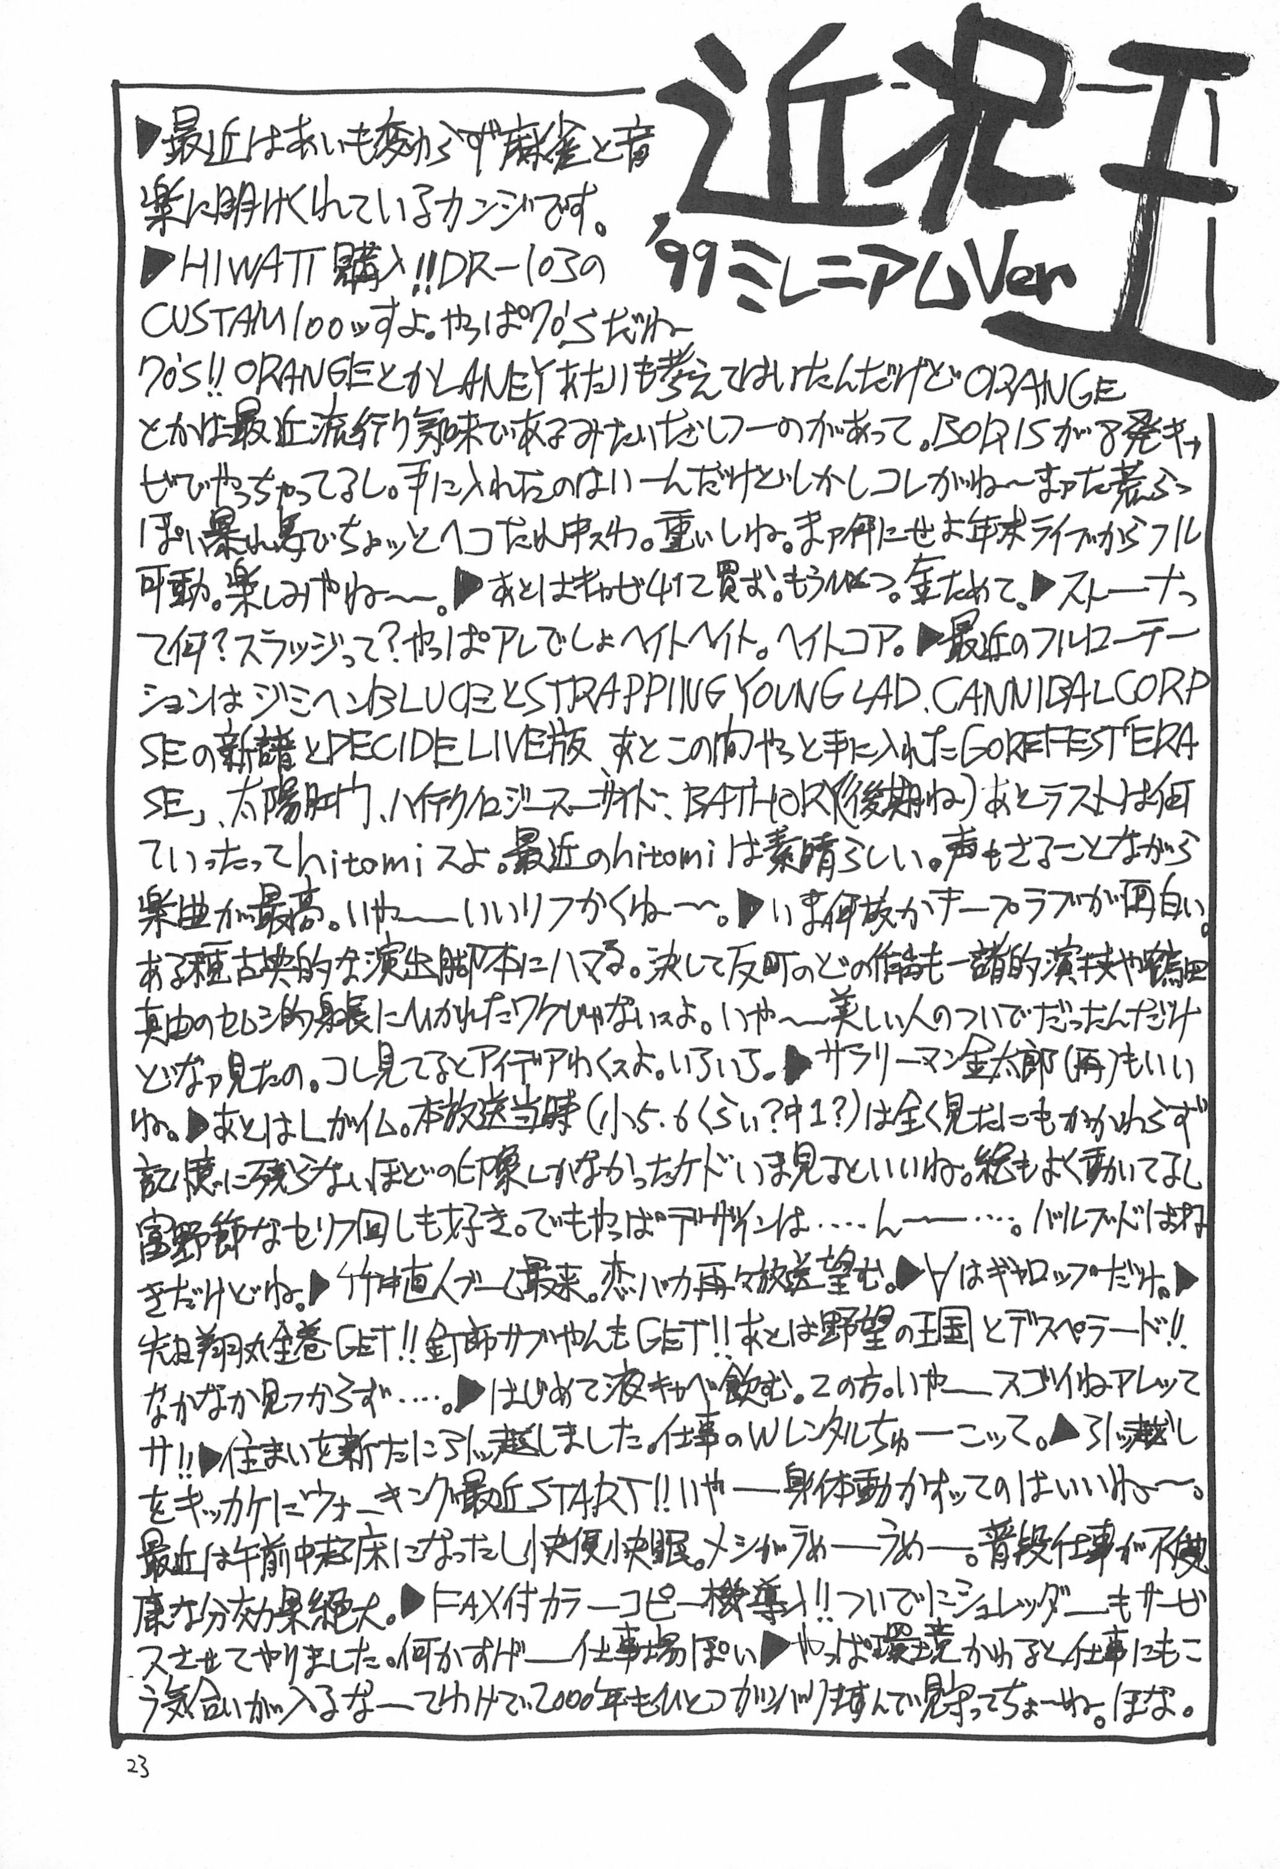 近況王
'99ミレニアムVer
▶最近はあいも変わらず麻雀と音
楽に明けくれているカンジです。
▶HIWATT購入!!DR-103の
CUSTAM100ッすよ。やっぱ70'Sだね〜
70'S!!ORANGEとかLANEYあたりも考えてはいたんだけどORANGE
とかは最近流行り気味であるみたいだしフーのがあって。BORISが8発キャ
ビでやっちゃってるし。手に入れたのはいーんだけどしかしコレがね〜まァた荒らっ
ぽい暴れ馬でちょッとヘコたれ中スわ。重いしね。まァ何にせよ年末ライブからフル
可動。楽しみやね〜。▶あとはキャビ4けて買む。もうひとつ。金ためて。▶ストーナっ
て何?スラッジって?やっぱアレでしょヘイトヘイト。ヘイトコア。▶最近のフルローテー
ションはジミヘンBLUCEとSTRAPPING YOUNG LAD、CANNIBAL CORP
SEの新譜とDECIDE LIVE版 あとこの間やっと手に入れたGOREFEST「ERA
SE」、太陽肛門、ハイテクノロジースーサイド、BATHORY(後期ね)あとラストは何
ていったってhitomiスよ。最近のhitomiは素晴らしい。声もさることながら
楽曲が最高。いや〜いいリフかくね〜。▶いま何故かオープラブが面白い。
ある種古典的な演出脚本にハマる。決して反町のどの作品も一諸的演技や鶴田
真由のセムシ的身長にひかれたワケじゃないスよ。いや〜美しい人のついでだったんだけ
どなァ見たの。コレ見てるとアイデアわくスよ。いろいろ。▶サラリーマン金太郎(再)もいい
ね。▶あとはLガイム。本放送当時(小5.6くらい?中1?)は全く見たにもかかわらず
記憶に残らないほどの印象しかなかったケドいま見るといいね。絵もよく動いてるし
富野節なセリフ回しも好き。でもやっぱデザインは……ん〜……。バルブドはね
きだけどね。▶竹中直人ブーム最来。恋のバカ再々放送望む。▶∀はギャロップだね。▶
先日翔丸全巻GET!!釘師サブやんもGET!!あとは野望の王国とデスペラード!!
なかなか見つからず……。▶はじめて液キャベ飲む。この方。いや〜スゴイねアレッて
サ!!▶住まいを新たに引ッ越しました。仕事のWレンタルちゅーこッて。▶引ッ越し
をキッカケにウォーキング最近START!!いやー身体動かすッてのはいいね〜。
最近は午前中起床になったし快便快眠。メシがうめーうめー。普段仕事が不健
康な分効果絶大。▶FAX付カラーコピー機導入!!ついでにシュレッダーもサービ
スさせてやりました。何かすげー仕事場ぽい▶やっぱ環境かわると仕事にもこ
う気合いが入るなーてわけで2000年もひとつガンバリますんで見守ってちょーね。ほな。
23